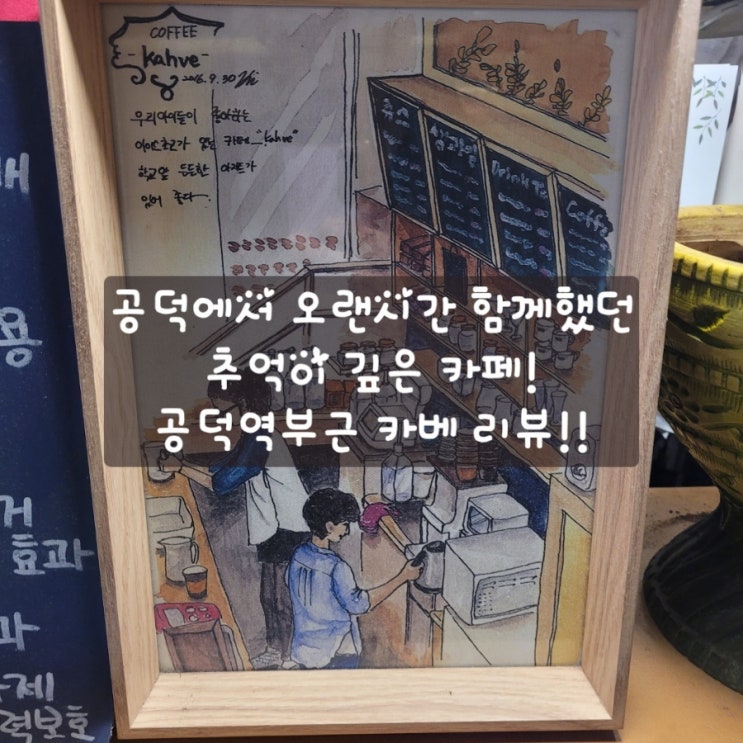 COFFEE
Kahve
2016.9.30
우리아이들이 좋아하는
카페 "Kahve"
학교앞 든든한 아지트가
있어 좋다
Drink
Coffee
공덕에서 오랜시간 함께했던
추억이 깊은 카페!
공덕역부근 카베 리뷰!!
해
용
거
효과
과
력보호